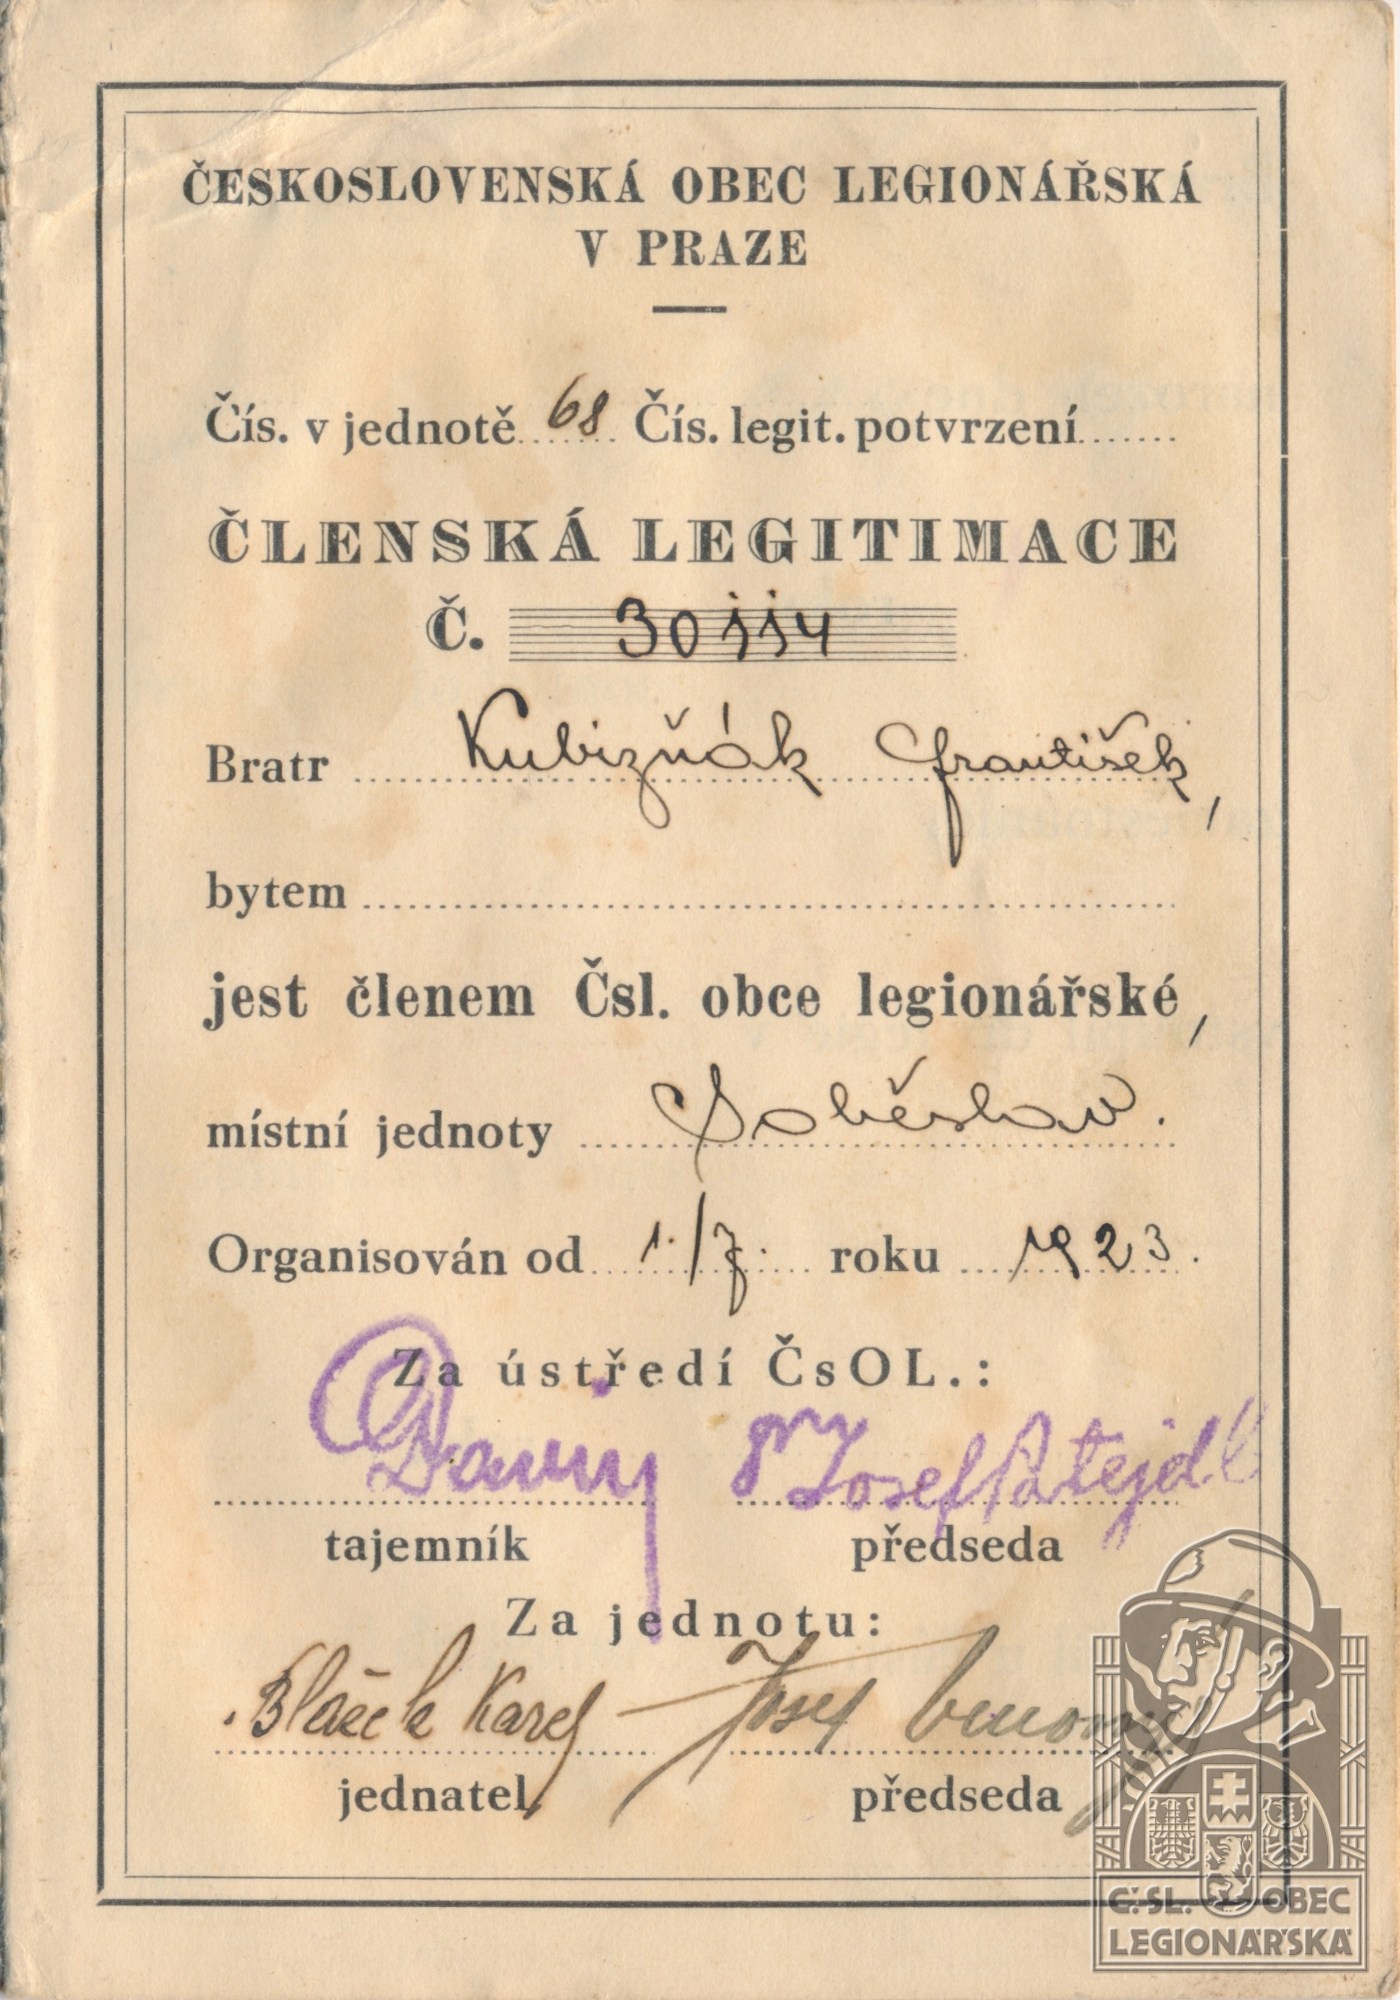 ČESKOSLOVENSKÁ OBEC LEGIONÁŘSKÁ
V PRAZE
Čís. v jednotě 68 Čís. legit. potvrzení
ČLENSKÁ LEGITIMACE
Č. 30114
Bratr Kubizňák František,
bytem
jest členem Čsl. obce legionářské,
místní jednoty Soběslav.
Organisován od 1./7. roku 1923.
Za ústředí ČsOL.:
Dr Josef Patejdl
tajemník předseda
Za jednotu:
Blažek Karel Josef
jednatel předseda
Č.SL. OBEC
LEGIONÁŘSKÁ